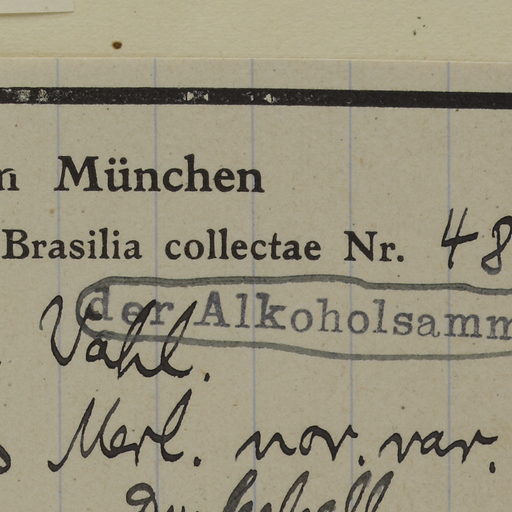 München
Brasilia collectae Nr. 48
der Alkoholsamm
Vahl.
Merl. nov. var.